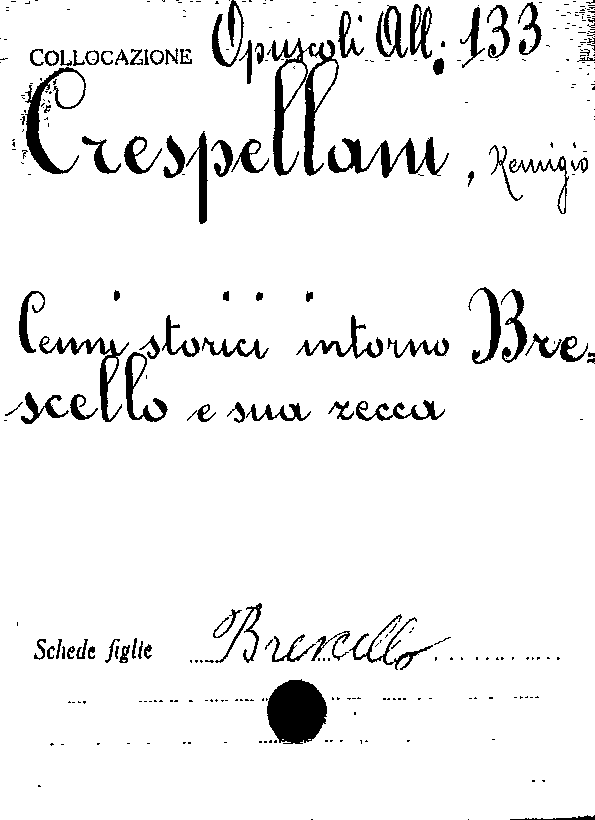 COLLOCAZIONE Opuscoli All: 133
Crespellani, Remigio
Cenni storici intorno Bre=
scello e sua zecca
Schede figlie Brescello